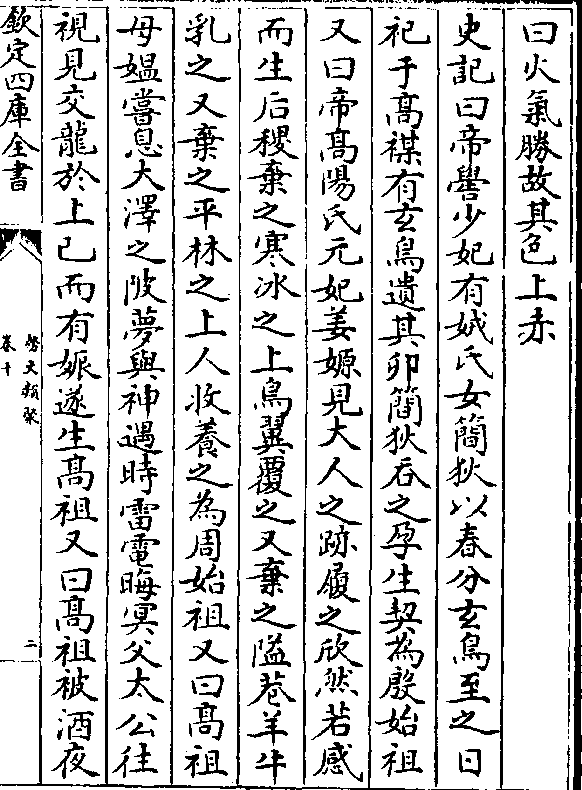 曰火氣勝故其色上赤
史記曰帝嚳少妃有娀氏女簡狄以春分玄鳥至之日
祀于髙禖有玄鳥遺其卵簡狄吞之孕生契為殷始祖
又曰帝髙陽氏元妃姜嫄見大人之跡履之欣然若感
而生后稷棄之寒冰之上鳥翼覆之又棄之隘巷羊牛
乳之又棄之平林之上人收養之為周始祖又曰髙祖
母媪嘗息大澤之陂夢與神遇時雷電晦冥父太公往
視見交龍於上已而有娠遂生髙祖又曰髙祖被酒夜
欽定四庫全書
藝文類聚
卷十
二